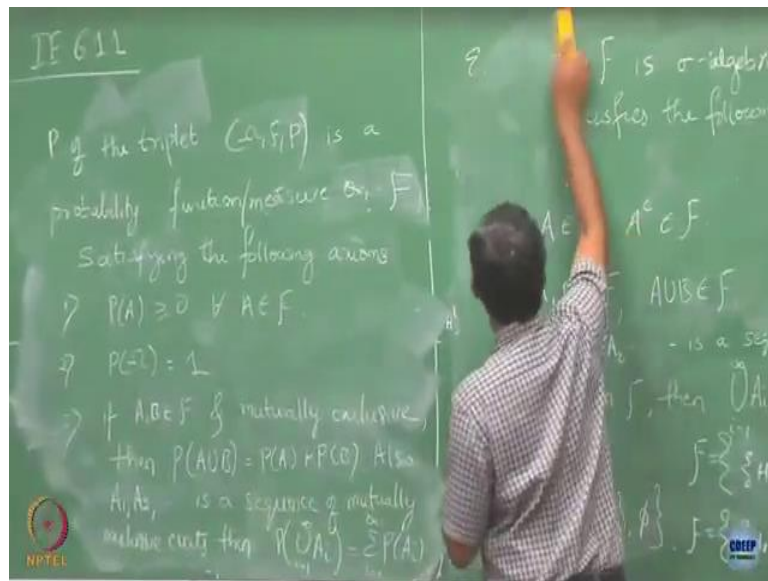 IE 611
P of the triplet (Ω, F, P) is a
probability function/measure on F
Satisfying the following axioms
1) P(A) ≥ 0 ∀ A ∈ F.
2) P(Ω) = 1
3) If A,B ∈ F & mutually exclusive,
then P(A∪B) = P(A) + P(B) Also
A₁, A₂, - is a sequence of mutually
exclusive events then P(∪Aᵢ) = ΣP(Aᵢ)
F is σ-algebra
the following
A ∈ Aᶜ ∈ F.
A∪B ∈ F.
A₂ - - is a seq
F, then ∪Aᵢ
F = { { H
, φ}. F = {
NPTEL
CDEEP